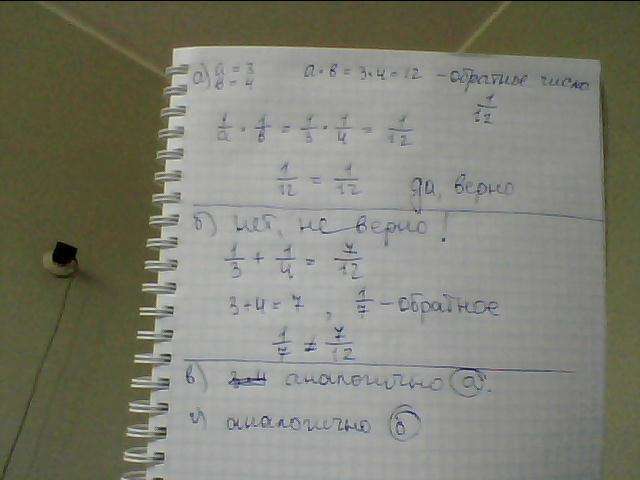 а) a = 3 a · в = 3 · 4 = 12 - обратное число
в = 4
1/12
1/a · 1/в = 1/3 · 1/4 = 1/12
1/12 = 1/12 да, верно
б) нет, не верно!
1/3 + 1/4 = 7/12
3 + 4 = 7, 1/7 - обратное
1/7 ≠ 7/12
в) аналогично а.
г) аналогично б